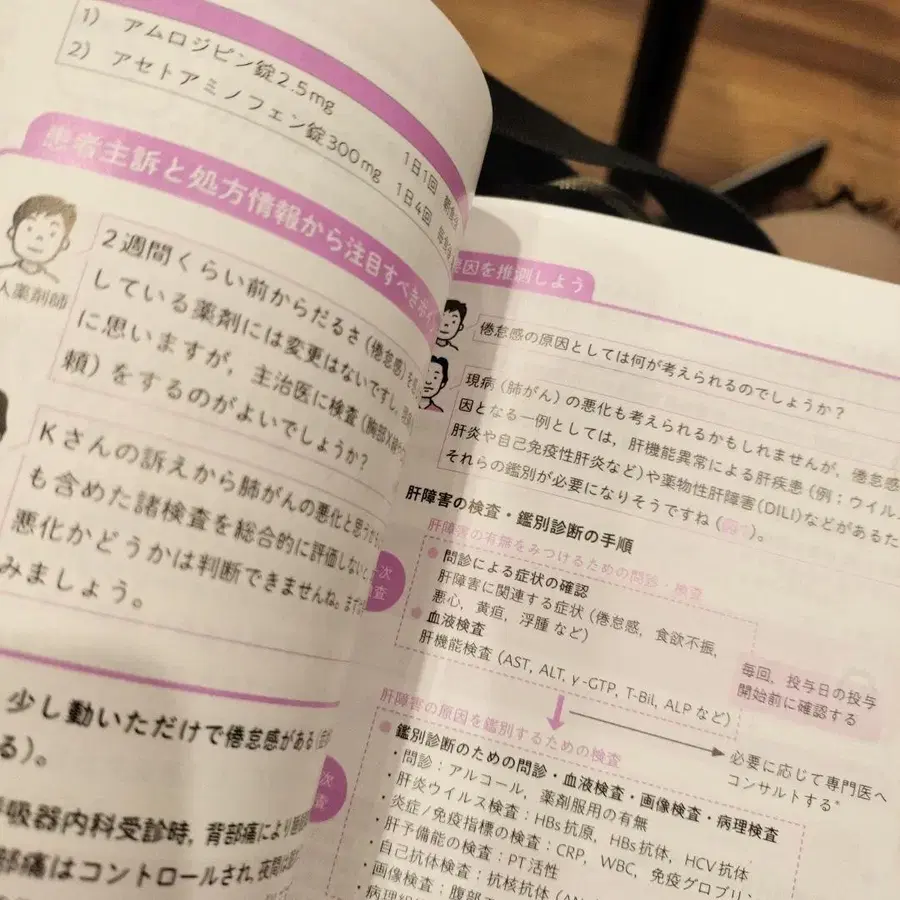 1) アムロジピン錠2.5mg 1日1回
2) アセトアミノフェン錠300mg 1日4回
患者主訴と処方情報から注目すべき
人薬剤師
2週間くらい前からだるさ(倦怠感)
している薬剤には変更はないですし,
に思いますが,主治医に検査(胸部X
頼)をするのがよいでしょうか?
Kさんの訴えから肺がんの悪化と思
も含めた諸検査を総合的に評価しない
悪化かどうかは判断できませんね。まず
みましょう。
少し動いただけで倦怠感がある
る)。
吸器内科受診時,背部痛により
部痛はコントロールされ,夜間
因を推測しよう
倦怠感の原因としては何が考えられるのでしょうか?
現病(肺がん)の悪化も考えられるかもしれませんが,倦怠感
因となる一例としては,肝機能異常による肝疾患(例:ウイル
肝炎や自己免疫性肝炎など)や薬物性肝障害(DILI)などがあるた
それらの鑑別が必要になりそうですね( )。
肝障害の検査・鑑別診断の手順
肝障害の有無をみつけるための問診・検査
次
査
● 問診による症状の確認
肝障害に関連する症状(倦怠感,食欲不振,
悪心,黄疸,浮腫など)
● 血液検査
肝機能検査(AST, ALT, γ-GTP, T-Bil, ALPなど)
毎回,投与日の投与
開始前に確認する
必要に応じて専門医へ
コンサルトする*
肝障害の原因を鑑別するための検査
次
査
● 鑑別診断のための問診・血液検査・画像検査・病理検査
・問診:アルコール,薬剤服用の有無
・肝炎ウイルス検査:HBs抗原,HBs抗体,HCV抗体
・炎症/免疫指標の検査:CRP,WBC,免疫グロブリン
・肝予備能の検査:PT活性
・自己抗体検査:抗核抗体(AN
・画像検査:腹部